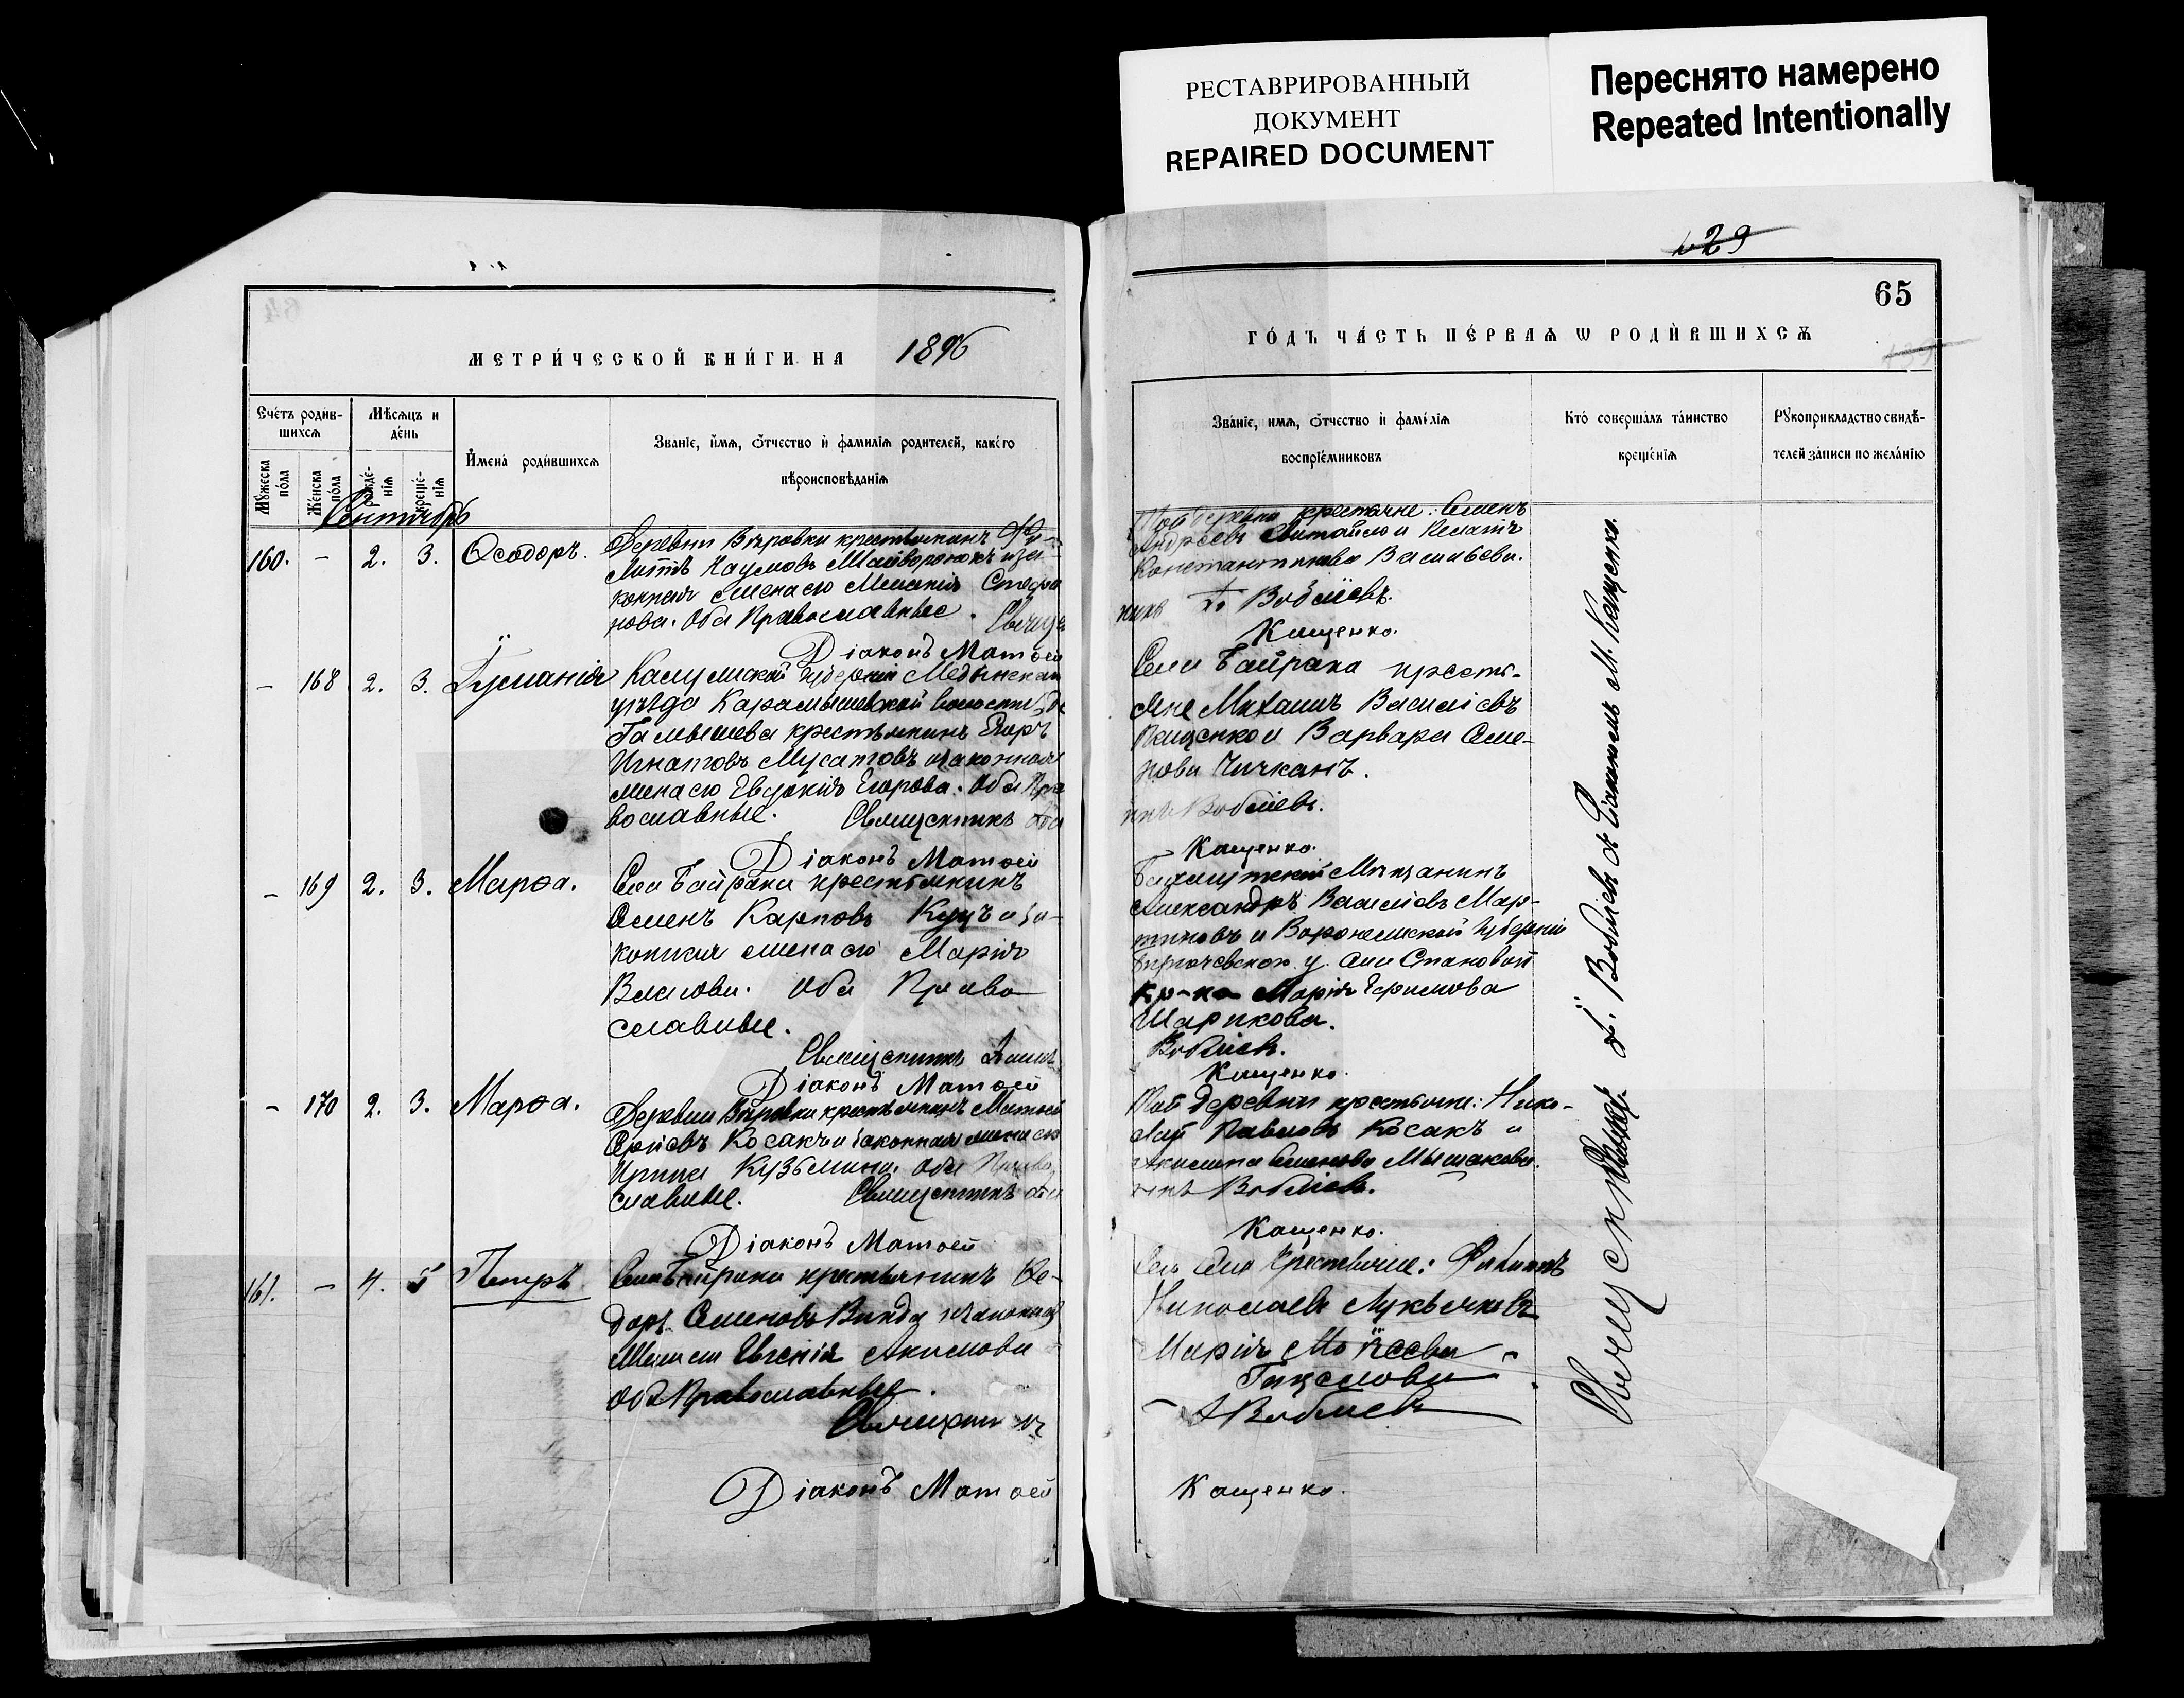 РЕСТАВРИРОВАННЫЙ
ДОКУМЕНТ
REPAIRED DOCUMENT
Переснято намерено
Repeated Intentionally
129
65
МЕТРИ́ЧЕСКОЙ КНИ́ГИ НА 1896
Сче́тъ роди́в-
шихсѧ
Мѣ́сѧцъ и
де́нь
Мꙋ́жеска
по́ла
Же́нска
по́ла
рожде́-
нія
креще́-
нія
И҆мена̀ роди́вшихсѧ
Зва́ніе, и҆́мѧ, ѻ҆́тчество и҆ фами́лія роди́телей, како́го
вѣроисповѣ́данія
Сентябрь
160. - 2. 3. Ѳеодоръ.
Деревни Вѣровки крестьянинъ
Наумовъ Майворонокъ и за-
конная жена его Меланія Стефа
нова. Оба Православные.
Діаконъ Матѳей
- 168 2. 3. Іуліанія
Калужской губерніи Медынскаго
уѣзда Карамышевской волости
крестьянинъ Егоръ
Игнатовъ Мусатовъ и законная
жена его Евдокія Егорова. Оба Пра
вославные. Священникъ
Діаконъ Матѳей
- 169 2. 3. Марѳа.
Села Байрака крестьянинъ
Семенъ Карповъ Куцъ и за-
конная жена его Марія
Власова. Оба Право
славные.
Священникъ
Діаконъ Матѳей
- 170 2. 3. Марѳа.
Деревни Вѣровки крестьянинъ Матѳей
Косакъ и законная жена его
Ирина Кузьмина. Оба Право
славные. Священникъ
Діаконъ Матѳей
161. - 4. 5 Петръ
Села Байрака крестьянинъ Ѳе-
доръ Семеновъ и законная
жена его Евгенія Акимова
Оба Православные.
Священникъ
Діаконъ Матѳей
ГО́ДЪ ЧА́СТЬ ПЕ́РВАѦ Ѡ РОДИ́ВШИХСѦ
Зва́ніе, имѧ, ѻ҆́тчество и҆ фамі́лія
воспріе́мниковъ
Кто̀ соверша́лъ та́инство
креще́нія
Рꙋкоприкладство свидѣ́-
телей за́писи по жела́нію
Той деревни крестьяне: Семенъ
Андреевъ
Константинова Васильева.
Воблiевъ.
Кащенко.
Села Байрака кресть-
яне Михаилъ Василіевъ
Пащенко и Варвара Семе-
нова Чичканъ.
Воблiевъ.
Кащенко.
Бахмутскій Мѣщанинъ
Александръ Василіевъ Мар-
тиновъ и Воронежской губерніи
у. села Становой
кр-ка Марія Ефимова
Шарикова.
Воблiевъ.
Кащенко.
Той деревни крестьяне: Нико-
лай Павловъ Косакъ и
Акилина Семенова
Воблiевъ.
Кащенко.
Николаевъ Лукьяновъ
Марія Моѵсеева
Воблiевъ
Кащенко.
Священникъ І. Воблiевъ съ Діакономъ М. Кащенко.